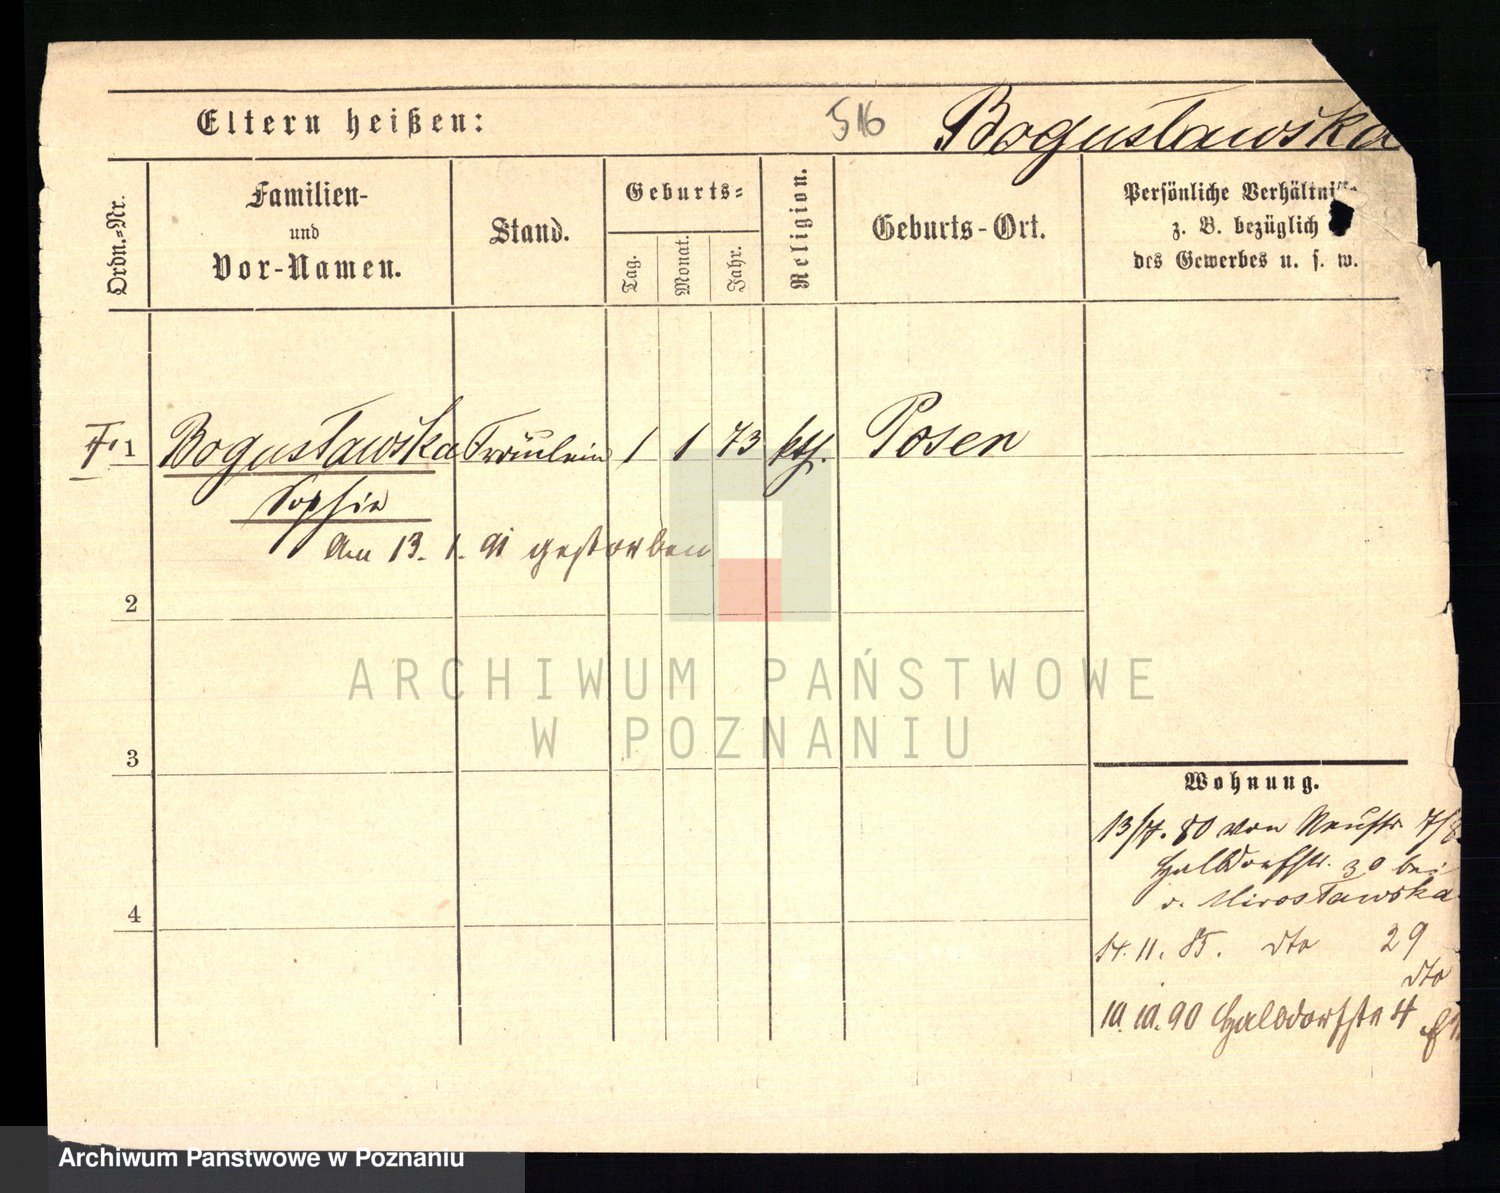 Eltern heißen: 516 Bogusławska
Ordn.-Nr.
Familien-
und
Vor-Namen.
Stand.
Geburts-
Tag. Monat. Jahr.
Religion.
Geburts-Ort.
Persönliche Verhältni
z. B. bezüglich
des Gewerbes u. s. w.
1 Bogusławska Fräulein 1 1 73 kth. Posen
Sophie
Am 13. 1. 91 gestorben
2
3
4
Wohnung.
13/7. 80 von Neustr 7/8
Halbdorfstr. 30 bei
v. Mirosławska
14. 11. 85. dto 29
dto
10. 10. 90 Halbdorfstr 4
ARCHIWUM PAŃSTWOWE
W POZNANIU
Archiwum Państwowe w Poznaniu